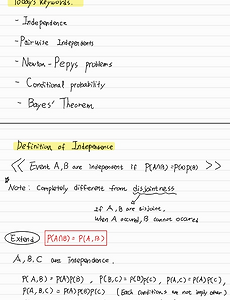 Today's keywords.
- Independence
- Pair-wise Independents
- Newton - Pepys problems
- Conditional probability
- Bayes' Theorem
Definition of Independence
<< Event A, B are independent if P(A∩B)=P(A)P(B) >>
* Note: Completely different from disjointness
If A, B are disjoint,
when A occured, B cannot occured
Extend P(A∩B) = P(A,B)
A, B, C are Independence.
P(A,B) = P(A)P(B), P(B,C) = P(B)P(C), P(A,C) = P(A)P(C),
P(A,B,C) = P(A)P(B)P(C) (Each conditions do not imply other)